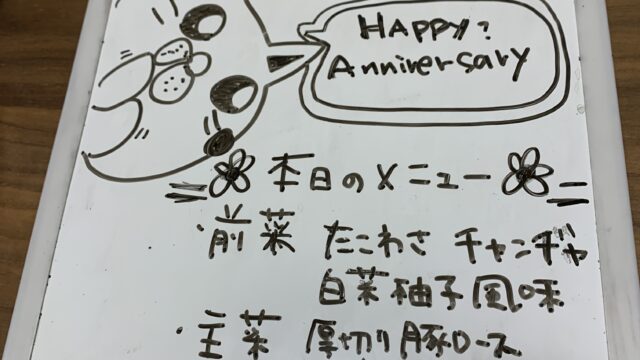 HAPPY?
Anniversary
本日のメニュー
・前菜 たこわさ チャンヂャ
白菜柚子風味
・主菜 厚切り豚ロース